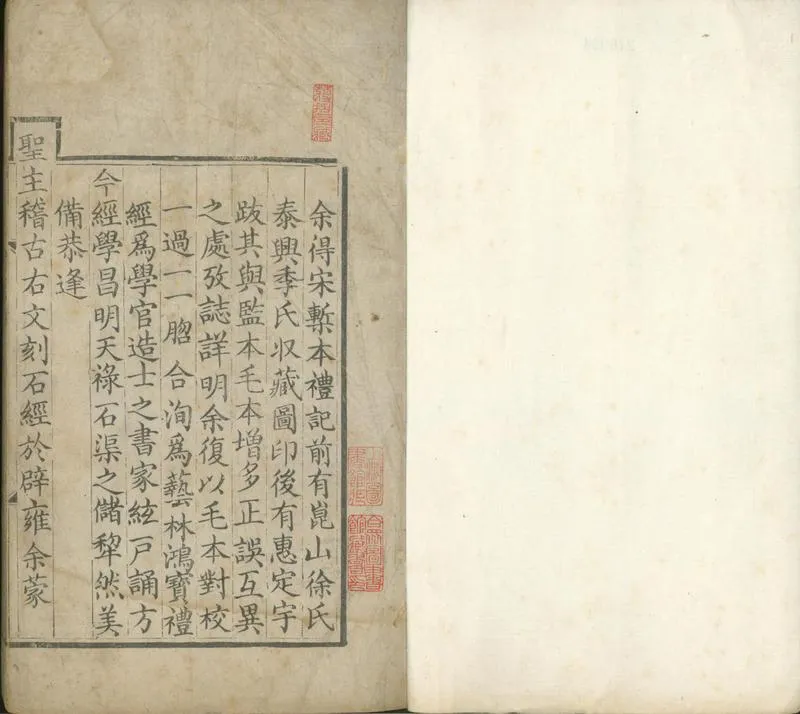 余得宋槧本禮記前有崑山徐氏
泰興季氏収藏圖印後有惠定宇
跋其與監本毛本增多正誤互異
之處攷誌詳明余復以毛本對校
一過一一脗合洵爲藝林鴻寶禮
經爲學官造士之書家絃戸誦方
今經學昌明天祿石渠之儲犂然美
備恭逢
聖主稽古右文刻石經於辟雍余蒙